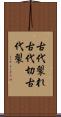 古代裂れ
古代切古
代裂